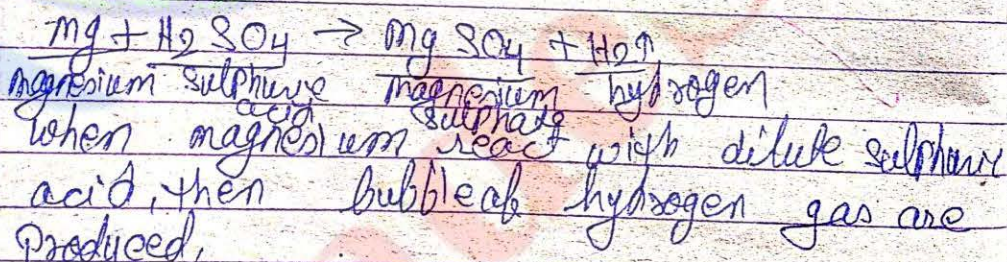 Mg + H2SO4 → Mg SO4 + H2↑
magnesium sulphuric magnesium hydrogen
acid sulphate
When magnesium react with dilute sulphuric
acid, then bubble of hydrogen gas are
Produced,